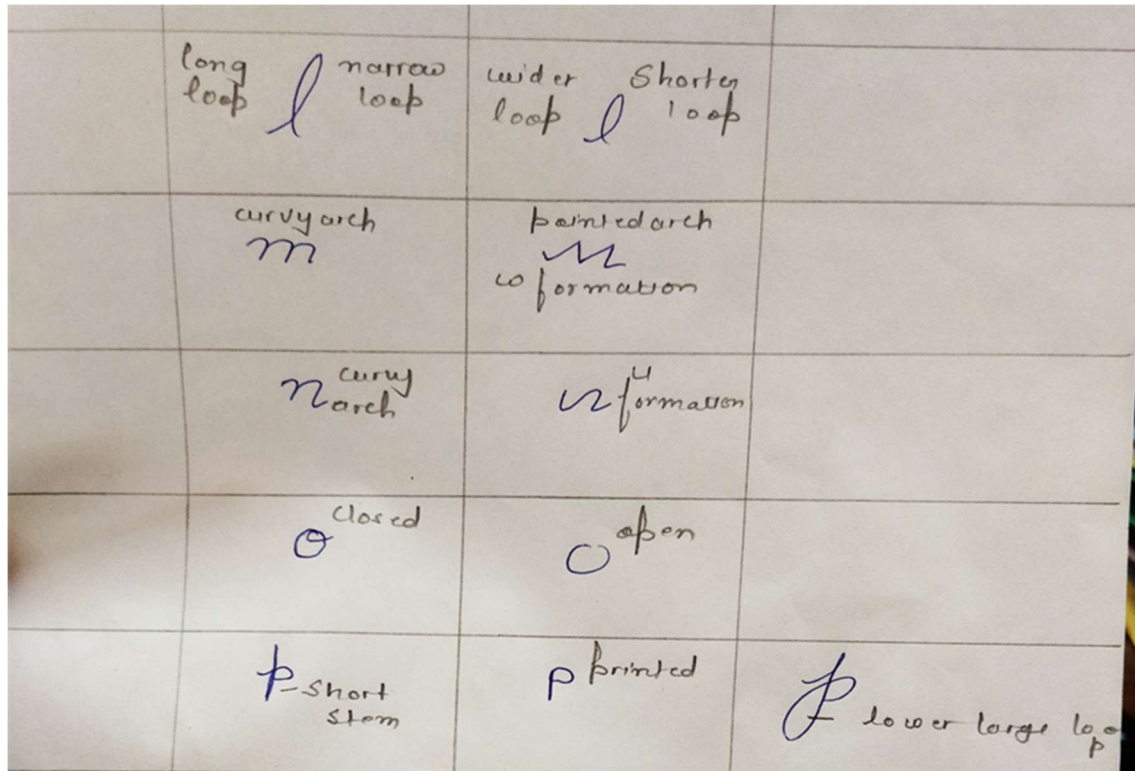 long l narrow
loop loop
wider l Shorter
loop loop
curvy arch
m
pointed arch
m
w formation
n curvy
arch
n u
formation
o closed
o open
p - short
stem
p printed
p - lower large loop